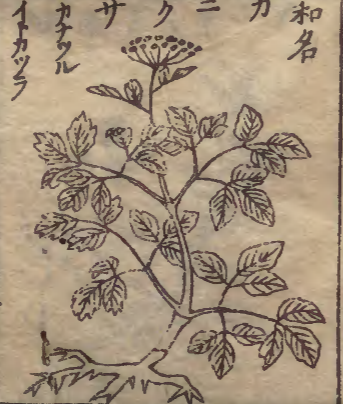 和名
カニクサ
カナツル
イトカツラ